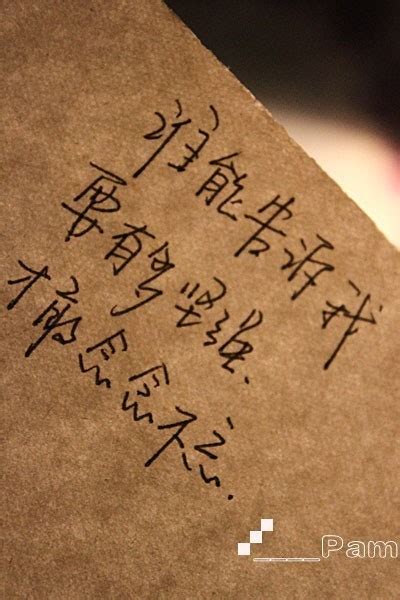 谁能告诉我
要有多坚强.
才敢念念不忘.
___Pam